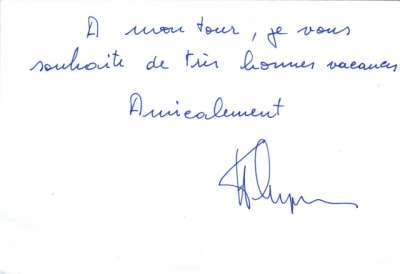 A mon tour, je vous
souhaite de très bonnes vacances
Amicalement